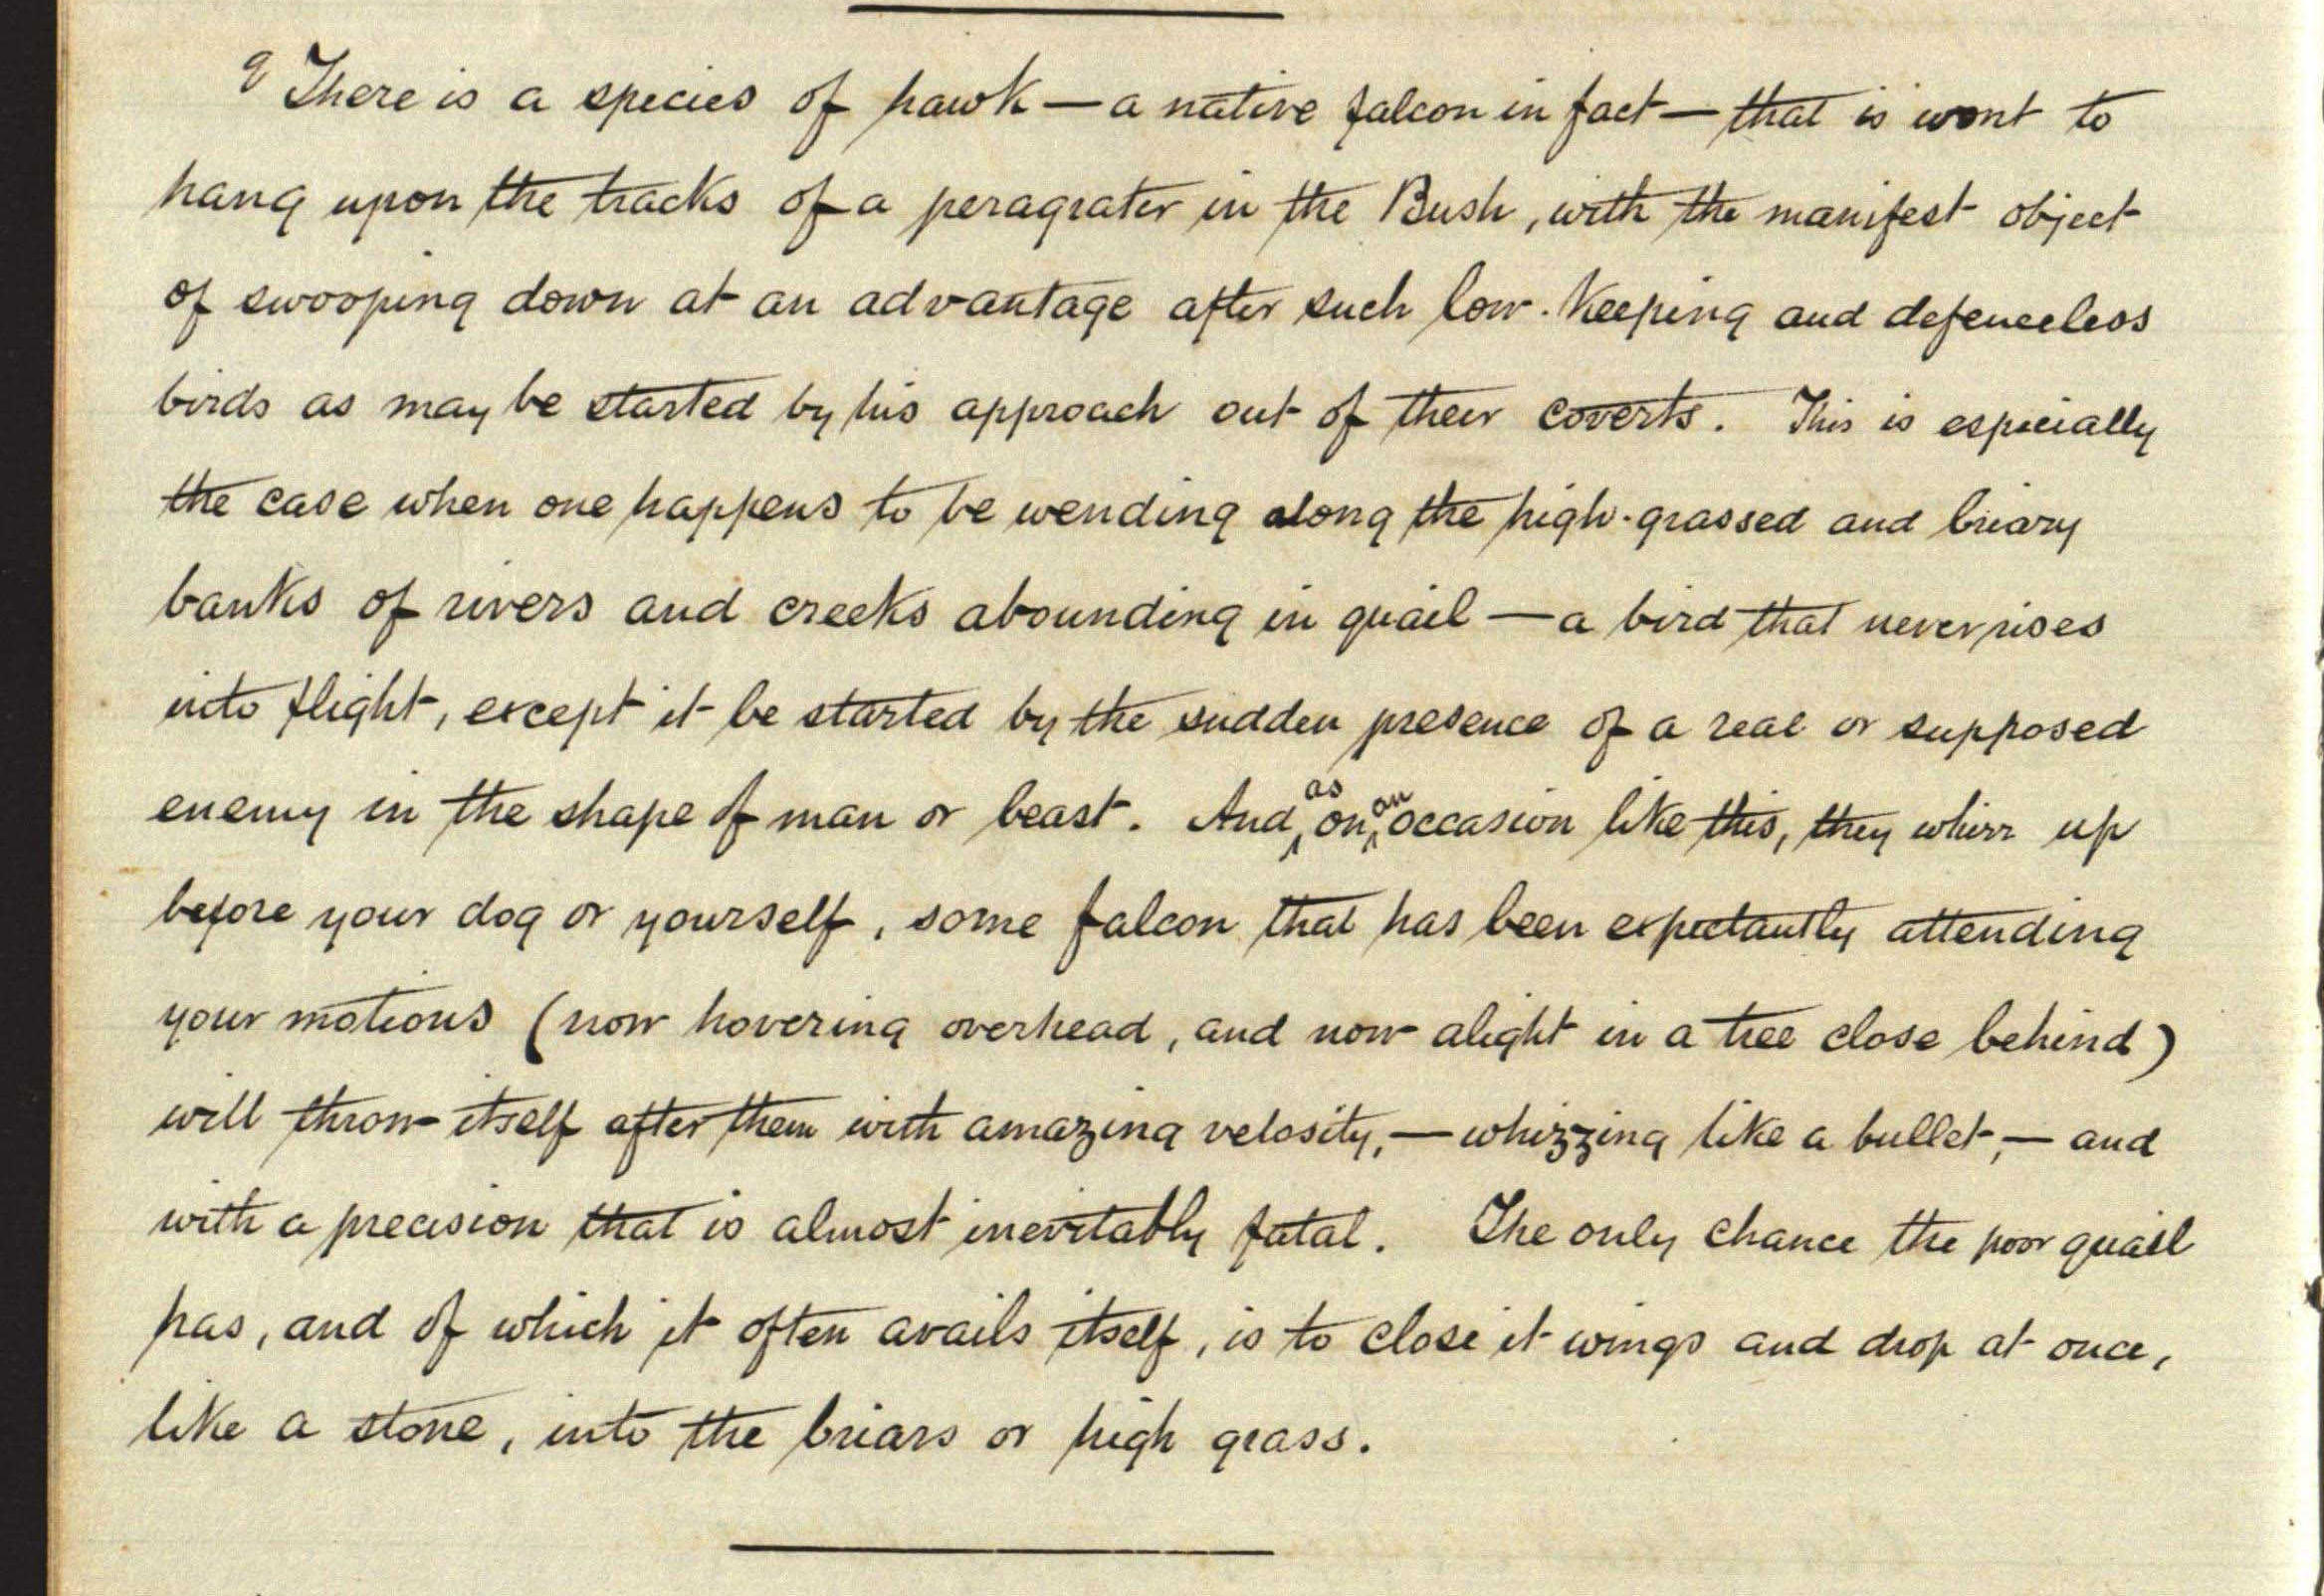 9 There is a species of hawk — a native falcon in fact — that is wont to
hang upon the tracks of a peragrater in the Bush, with the manifest object
of swooping down at an advantage after such low-keeping and defenceless
birds as may be started by his approach out of their coverts. This is especially
the case when one happens to be wending along the high-grassed and briary
banks of rivers and creeks abounding in quail — a bird that never rises
into flight, except it be started by the sudden presence of a real or supposed
enemy in the shape of man or beast. And as on an occasion like this, they whirr up
before your dog or yourself, some falcon that has been expectantly attending
your motions (now hovering overhead, and now alight in a tree close behind)
will throw itself after them with amazing velosity, — whizzing like a bullet, — and
with a precision that is almost inevitably fatal. The only chance the poor quail
has, and of which it often avails itself, is to close it wings and drop at once,
like a stone, into the briars or high grass.